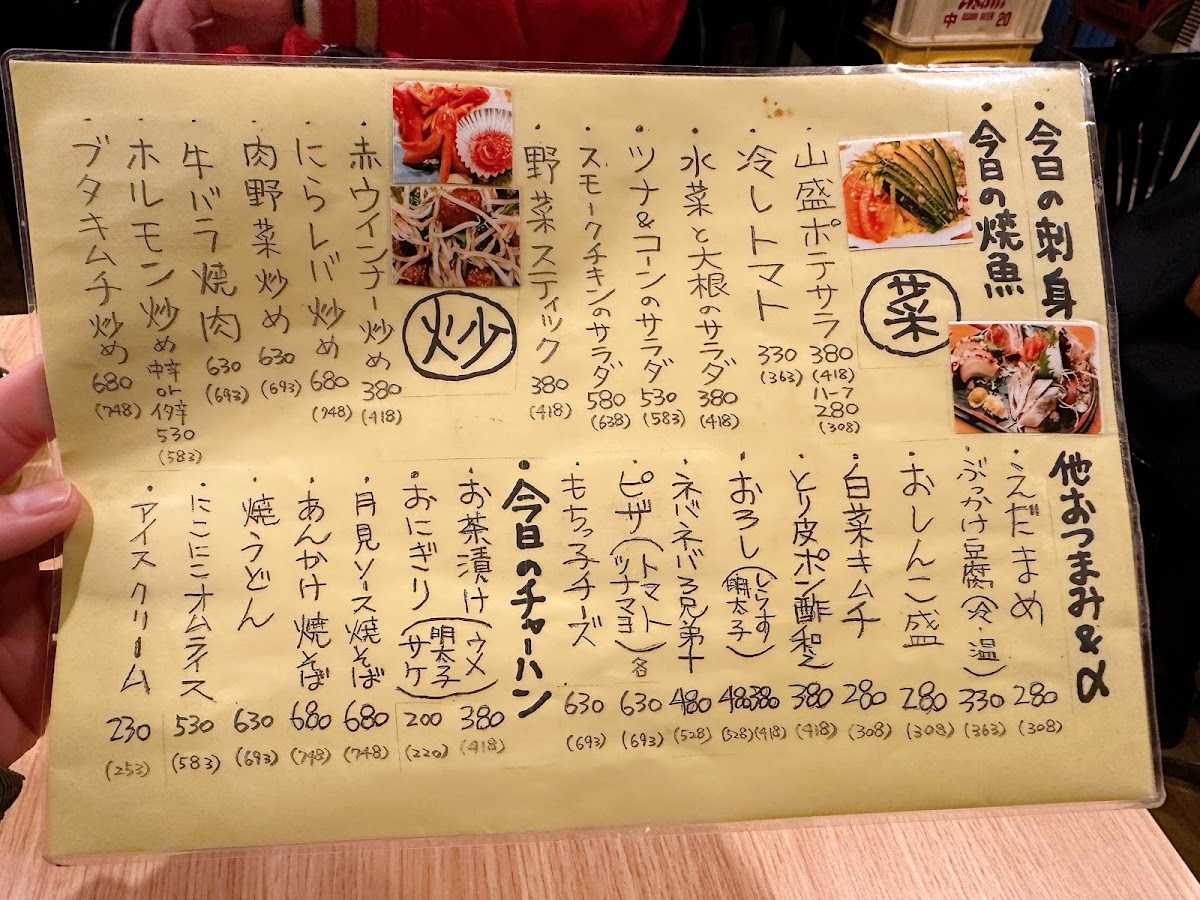 ・今日の刺身
・今日の焼魚
菜
・山盛ポテサラ 380 (418) ハーフ 280 (308)
・冷しトマト 330 (363)
・水菜と大根のサラダ 380 (418)
・ツナ&コーンのサラダ 530 (583)
・スモークチキンのサラダ 580 (638)
・野菜スティック 380 (418)
炒
・赤ウインナー炒め 380 (418)
・にらレバ炒め 680 (748)
・肉野菜炒め 630 (693)
・牛バラ焼肉 630 (693)
・ホルモン炒め 530 (583)
・ブタキムチ炒め 680 (748)
他おつまみ&α
・えだまめ 280 (308)
・ぶっかけ豆腐(冷、温) 330 (363)
・おしんこ盛 280 (308)
・白菜キムチ 280 (308)
・とり皮ポン酢和え 380 (418)
・おろし(しらす 明太子) 380 (418) 480 (528)
・ネバネバ3兄弟 480 (528)
・ピザ(トマト ツナマヨ)各 630 (693)
・もちっ子チーズ 630 (693)
・今日のチャーハン
・お茶漬け 380 (418)
・おにぎり 200 (220)
(ウメ 明太子 サケ)
・月見ソース焼そば 680 (748)
・あんかけ焼そば 680 (748)
・焼うどん 630 (693)
・にこにこオムライス 530 (583)
・アイスクリーム 230 (253)
中 20